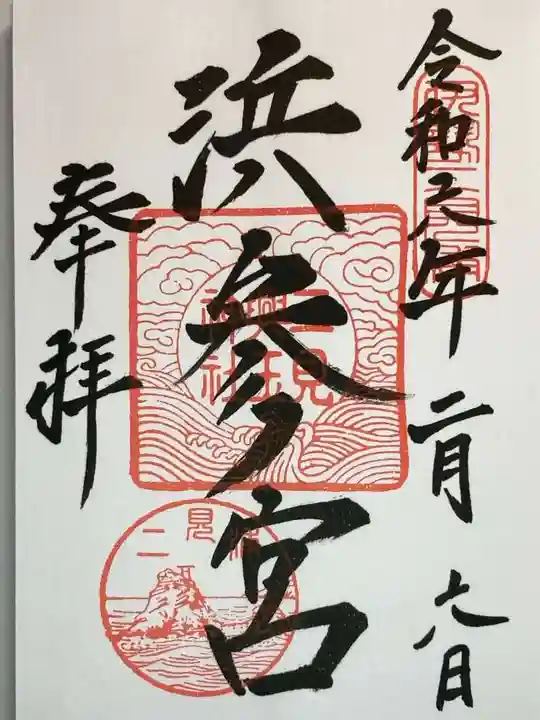 令和六年二月六日
浜参宮
奉拝
二見興玉神社
二見浦